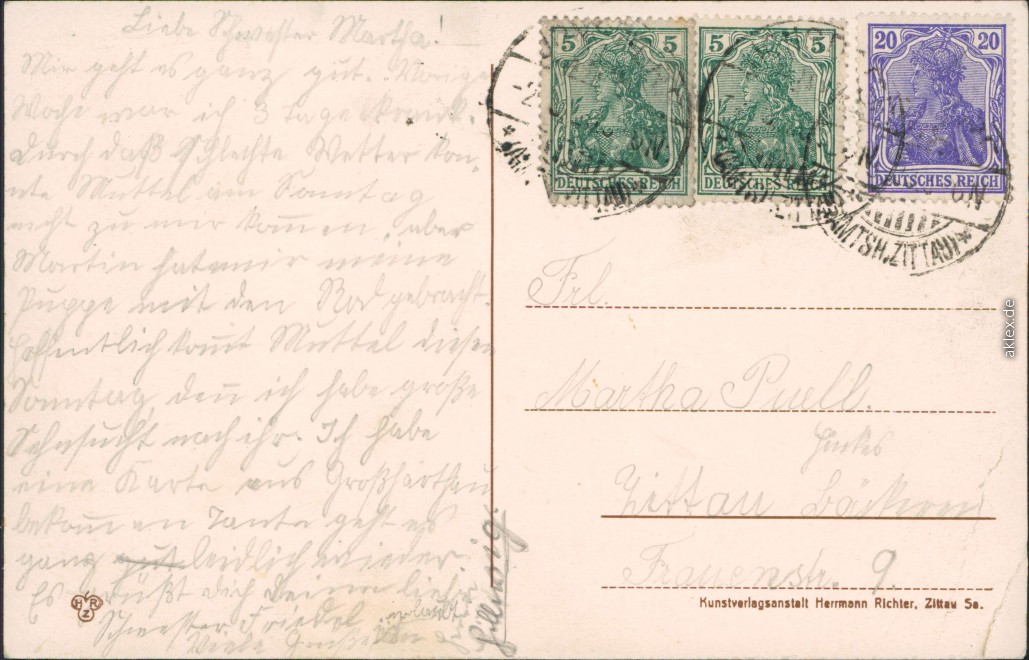 Liebe Schwester Martha.
Mir geht es ganz gut. Vorige
Woche war ich 3 Tage krank.
Durch daß schlechte Wetter kon̅
nte Muttel am Sonntag
nicht zu mir kom̅en, aber
Martin hat mir meine
Puppe mit den Rad gebracht.
Hoffentlich kom̅t Muttel diesen
Sonntag, den̅ ich habe große
Sehnsucht nach ihr. Ich habe
eine Karte aus Großharthau
bekom̅en Tante geht es
ganz gut leidlich wieder.
Es grüßt dich deine liebe
Schwester Friedel
Viele Grüße
5 5
DEUTSCHES REICH
5 5
DEUTSCHES REICH
20 20
DEUTSCHES REICH
(AMTSH. ZITTAU)
Frl.
Martha Puell.
Zittau Bäckerei
Frauenstr. 9.
Kunstverlagsanstalt Herrmann Richter, Zittau Sa.
HRZ
aklex.de